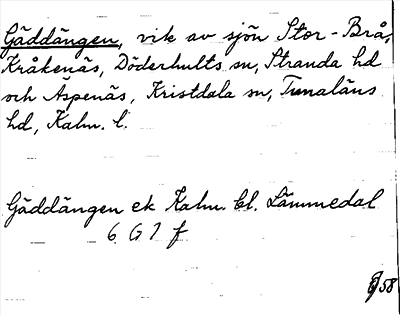 Gäddängen, vik av sjön Stor-Brå,
Kråkenäs, Döderhults sn, Stranda hd
och Aspenäs, Kristdala sn, Tunaläns
hd, Kalm. l.
Gäddängen ek Kalm. bl. Lämmedal
6 G 7 f
58